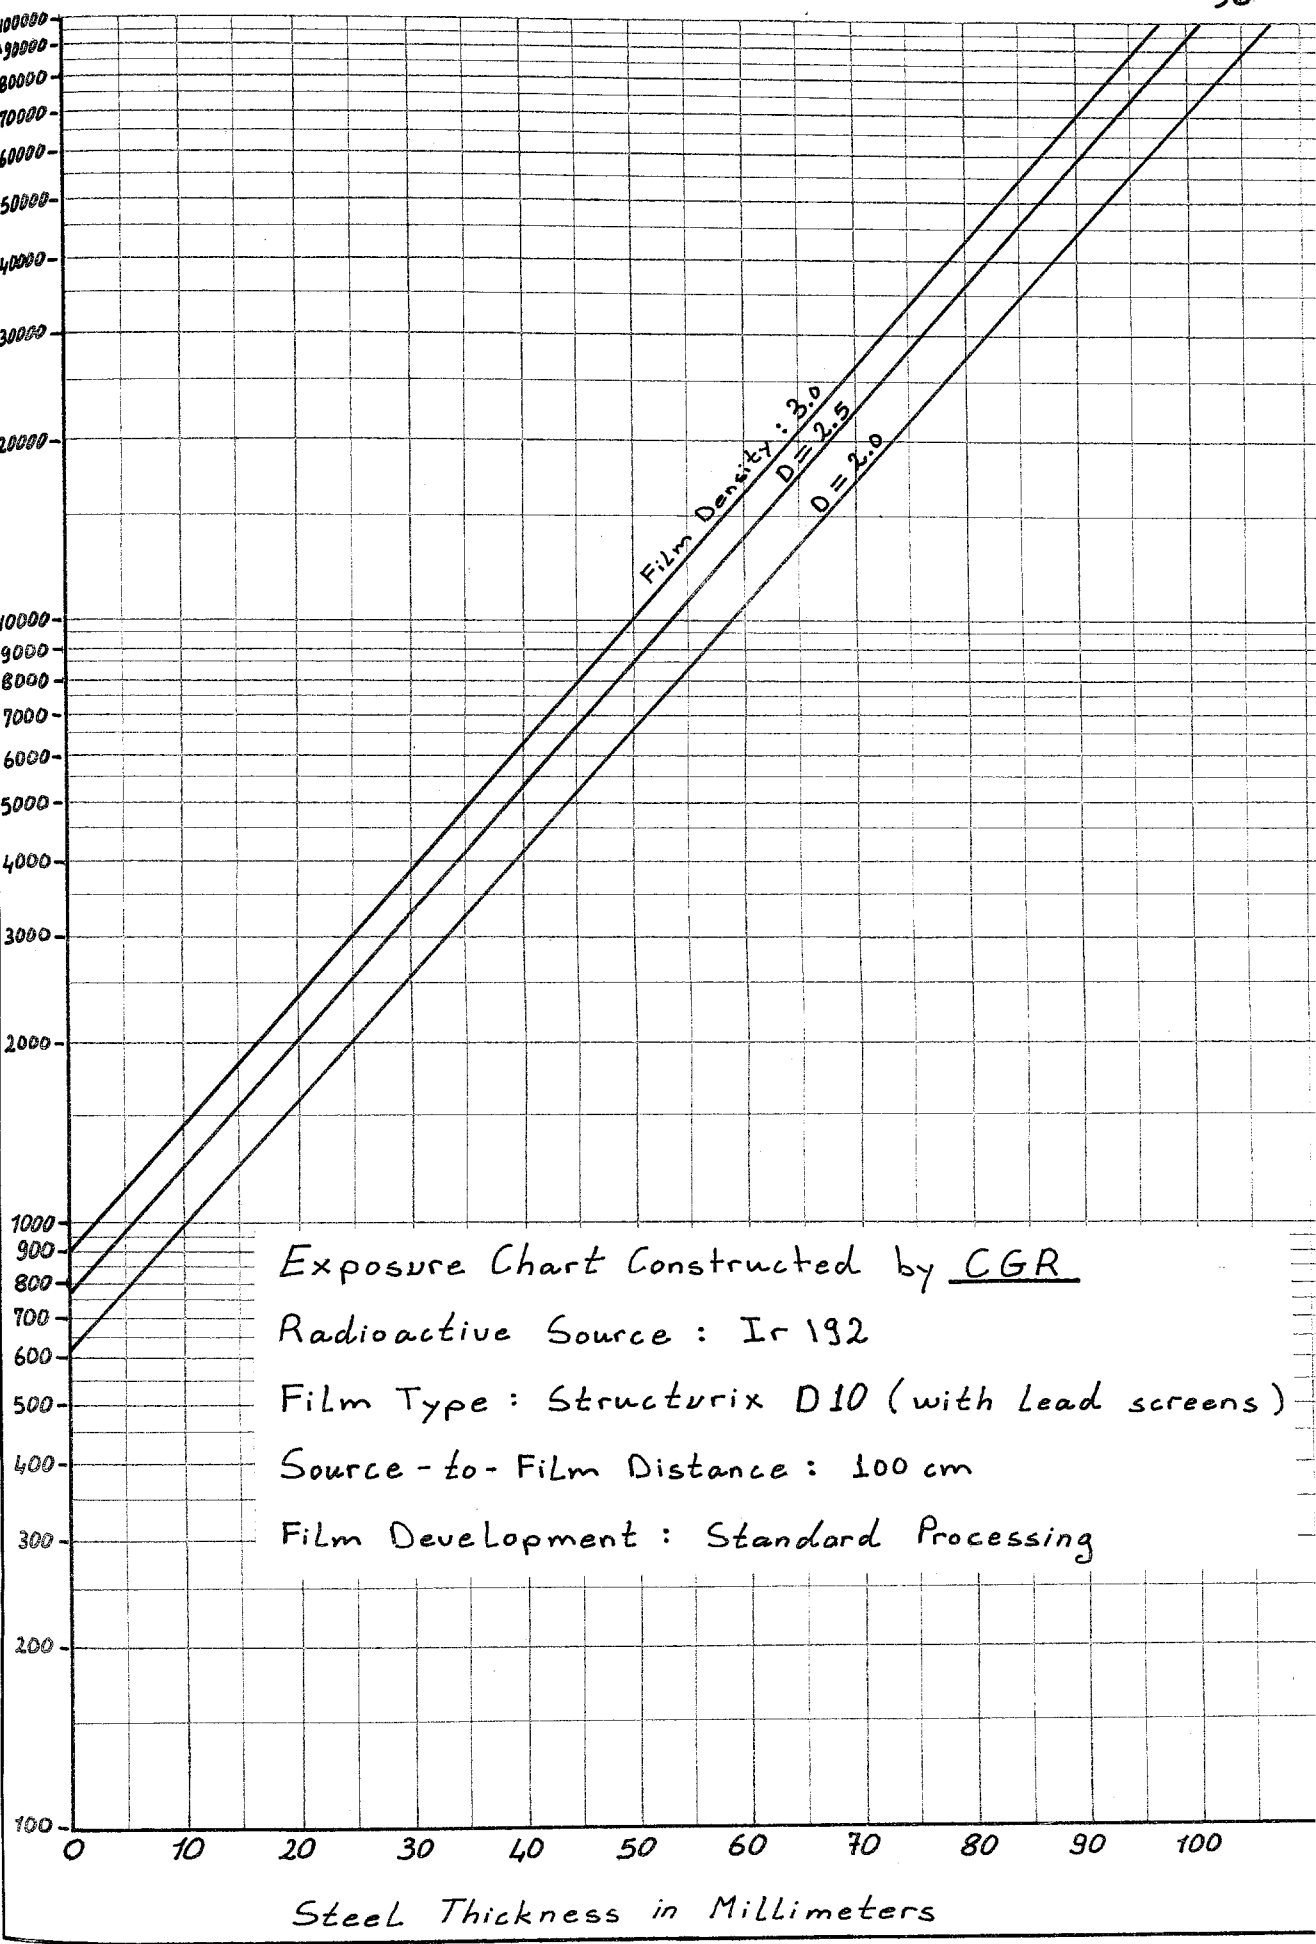 100000
90000
80000
70000
60000
50000
40000
30000
20000
10000
9000
8000
7000
6000
5000
4000
3000
2000
1000
900
800
700
600
500
400
300
200
100
Film Density : 3.0
D = 2.5
D = 2.0
Exposure Chart Constructed by CGR
Radioactive Source : Ir 192
Film Type : Structurix D10 (with Lead screens)
Source-to-Film Distance : 100 cm
Film Development : Standard Processing
0 10 20 30 40 50 60 70 80 90 100
Steel Thickness in Millimeters